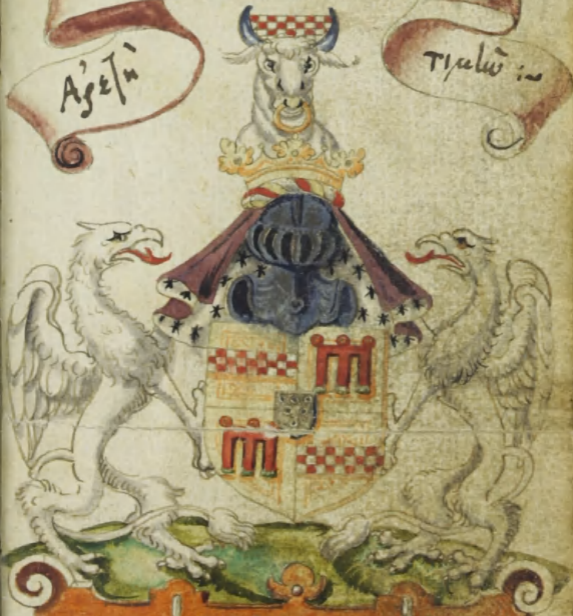 Ἀρετὴ
τιμιῶ :~